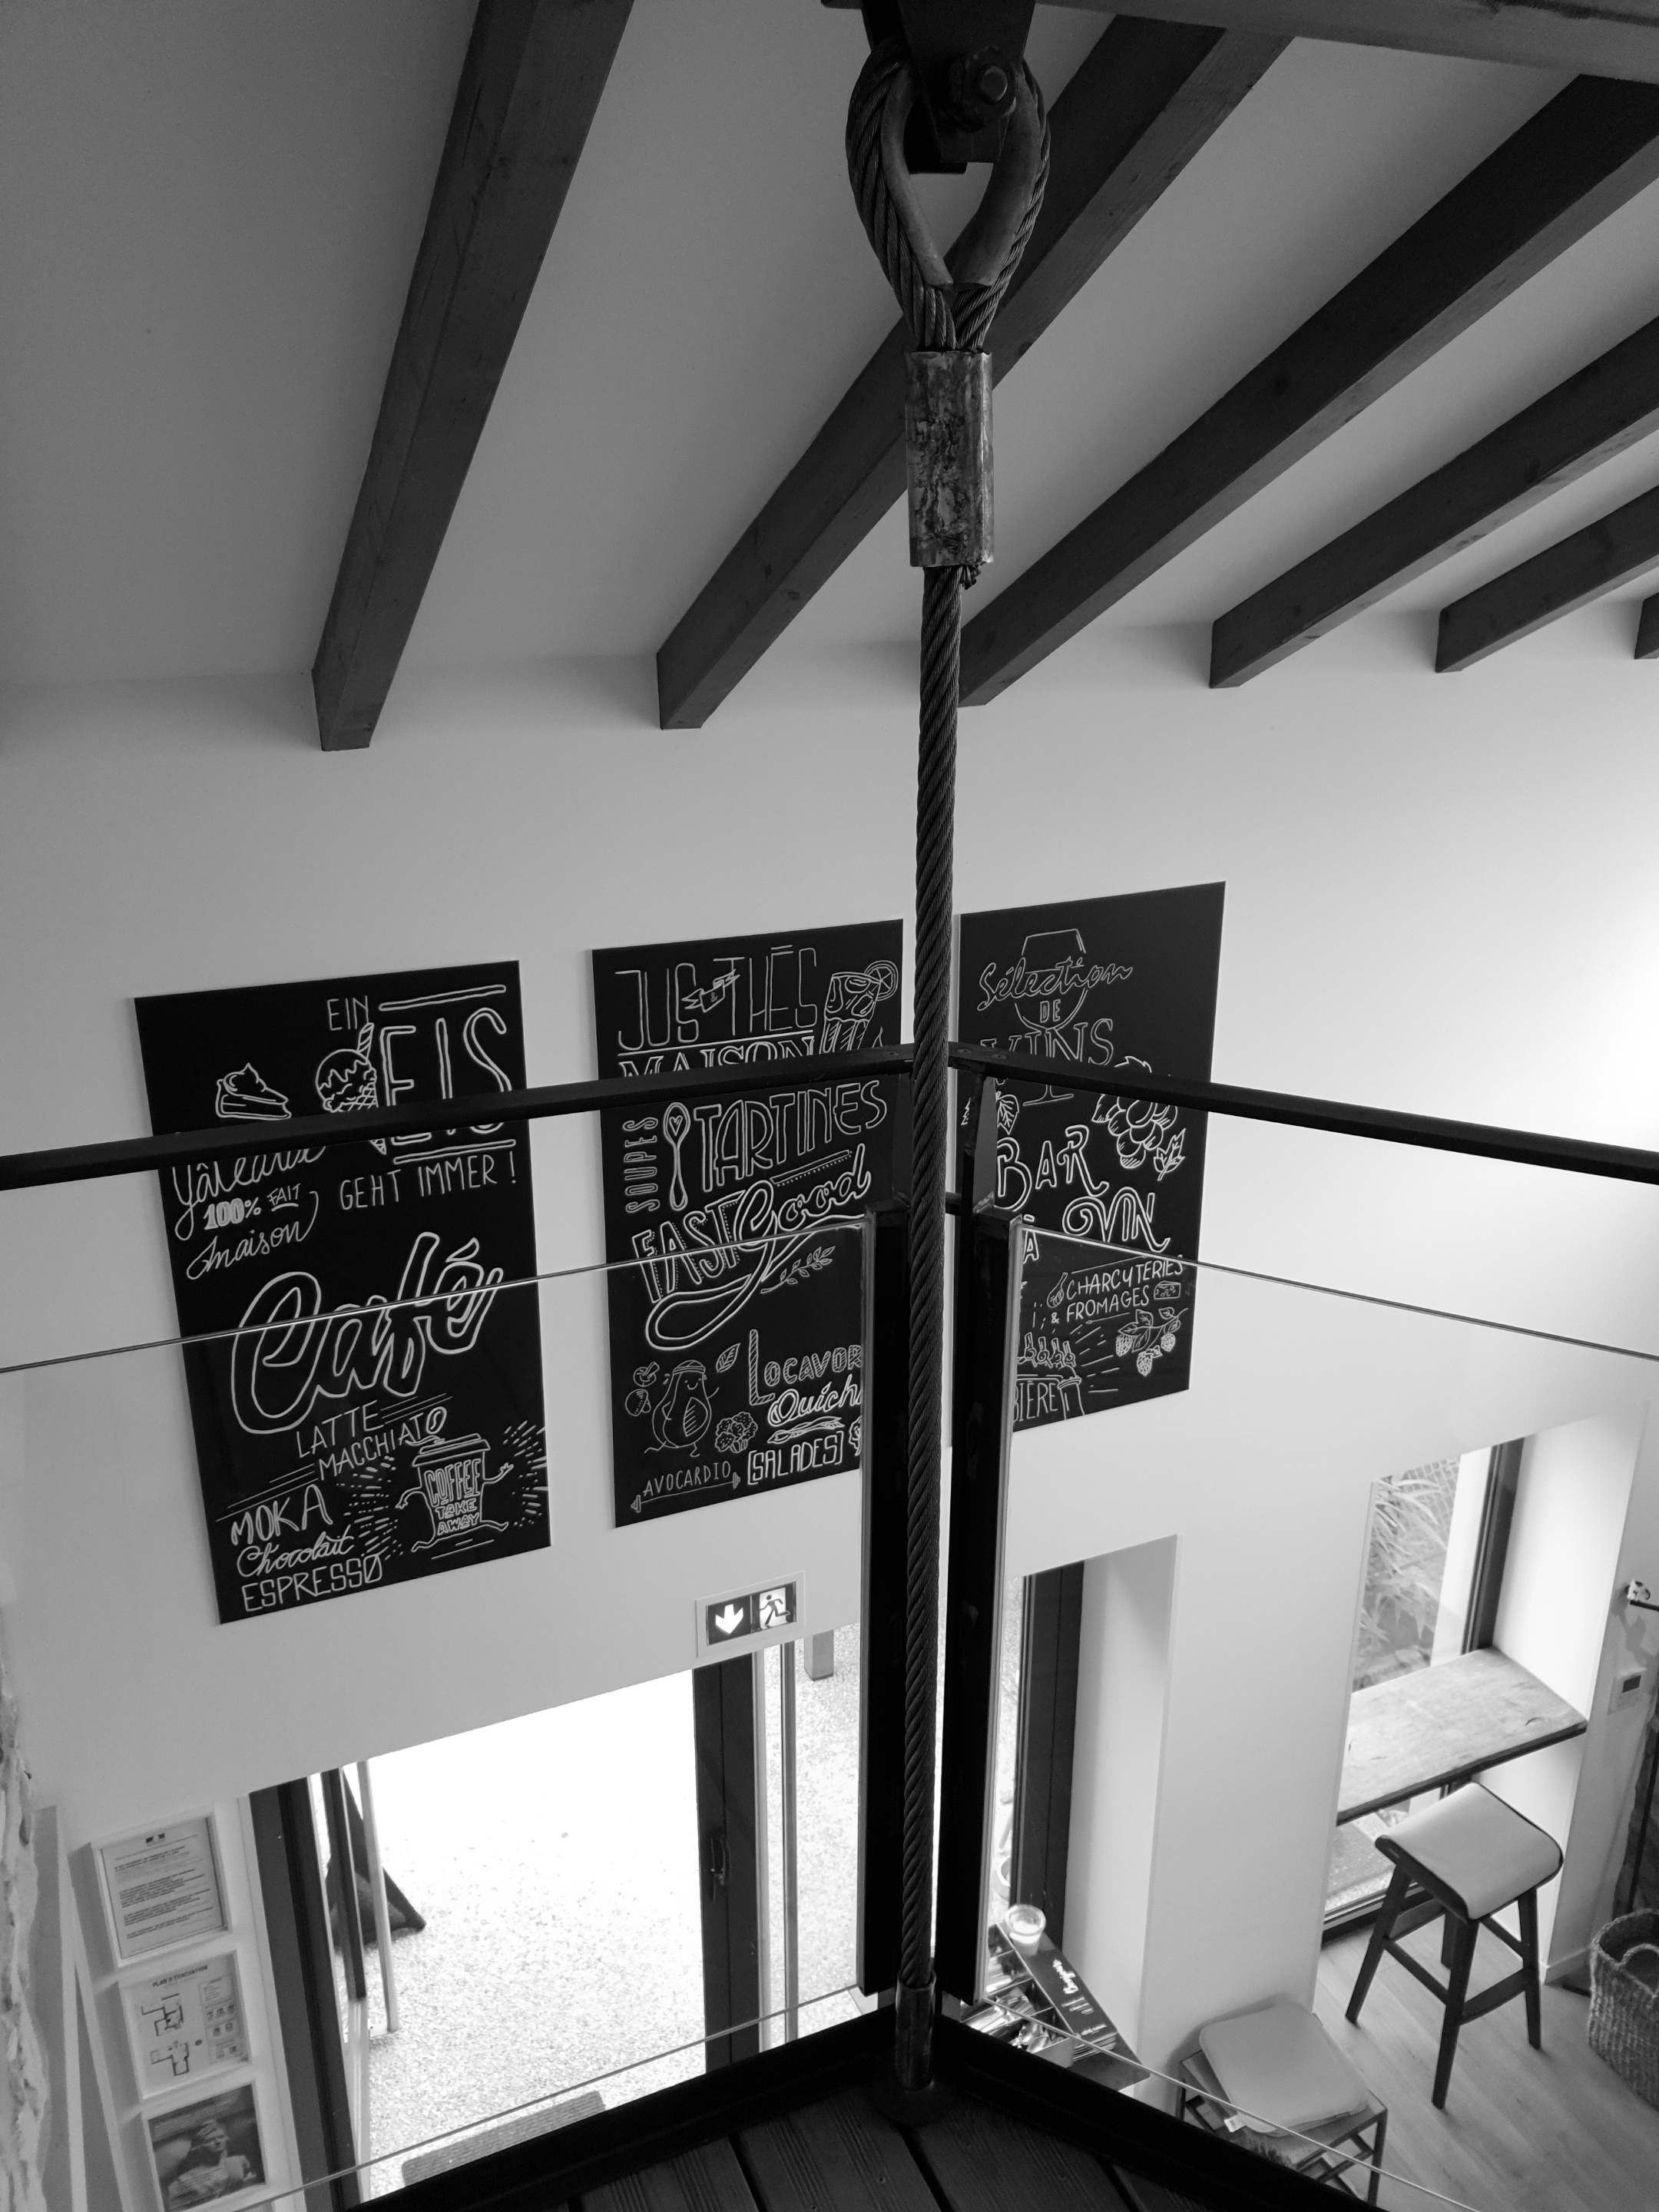 EIN
EIS
Gâteaux
100% FAIT
maison
GEHT IMMER !
Café
LATTE
MACCHIATO
COFFEE
TAKE
AWAY
MOKA
Chocolat
ESPRESSO
JUS & THÉS
MAISON
SOUPES
TARTINES
FAST Good
LOCAVOR
Quich
AVOCARDIO
[SALADES]
Sélection
DE
VINS
BAR
À
VIN
CHARCUTERIES
& FROMAGES
BIÈRE
PLAN D'ÉVACUATION